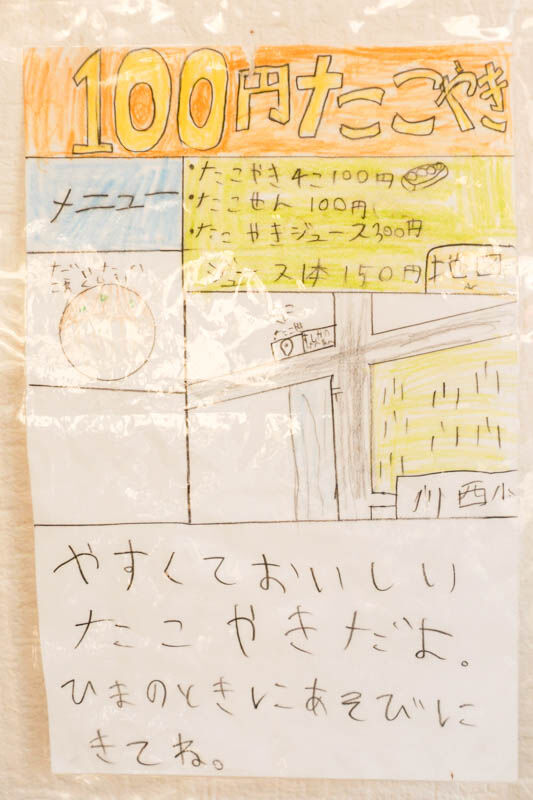 100円たこやき
メニュー
・たこやき4こ100円
・たこせん 100円
・たこやきジュース300円
ジュース1本 150円
地図
川西小
やすくておいしい
たこやきだよ。
ひまのときにあそびに
きてね。